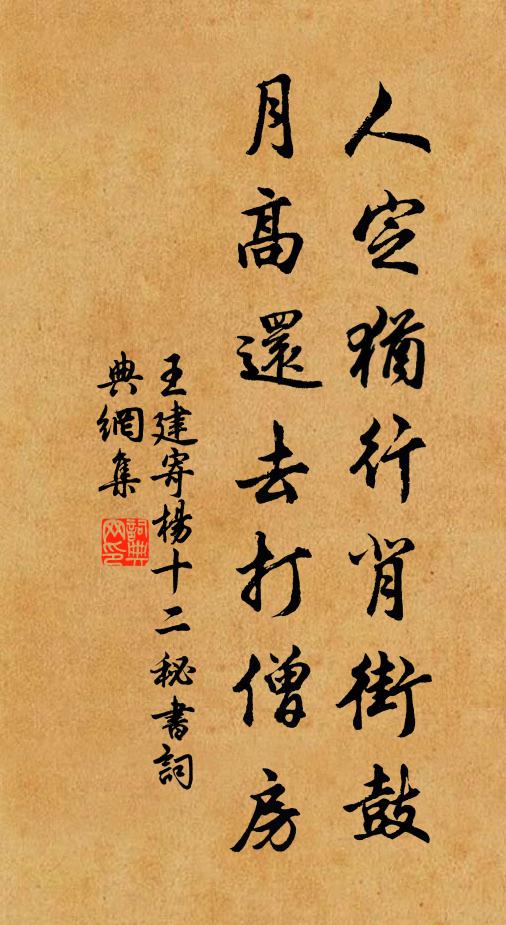 人定猶行背街鼓
月高還去打僧房
王建寄楊十二秘書詞
典網集
詞典网印